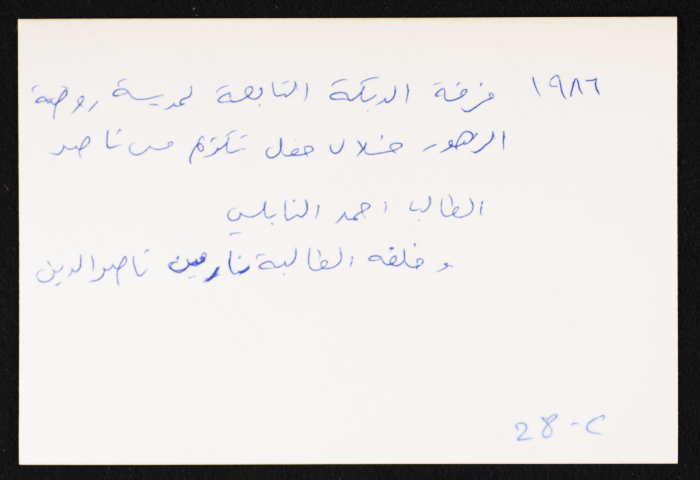 ١٩٨٦ فرقة الدبكة التابعة لمدرسة روضة
الزهور خلال حفل تكريم مس ناصر
الطالب احمد النابلسي
و خلفه الطالبة نارمين ناصر الدين
28-C